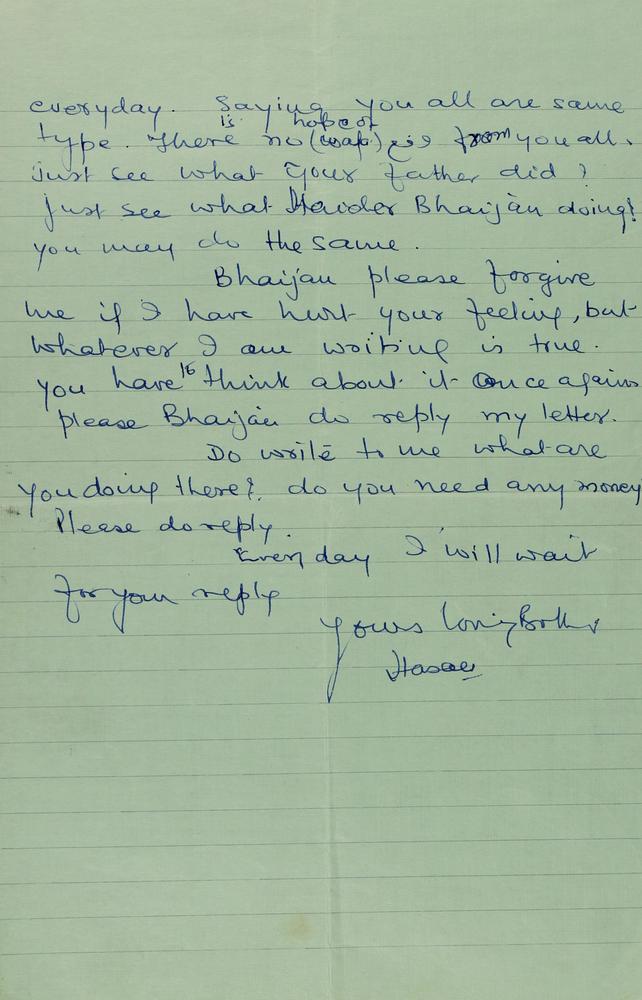 everyday. Saying you all are same
is hope of
type. There no (wafa) from you all.
just see what your father did?
just see what Haider Bhaijan doing?
you may do the same.
Bhaijan please forgive
me if I have hurt your feeling, but
whatever I am writing is true.
you have to think about it once again
please Bhaijan do reply my letter.
Do write to me what are
you doing there?. do you need any money
Please do reply.
Every day I will wait
for your reply
yours loving Brother
Hasan